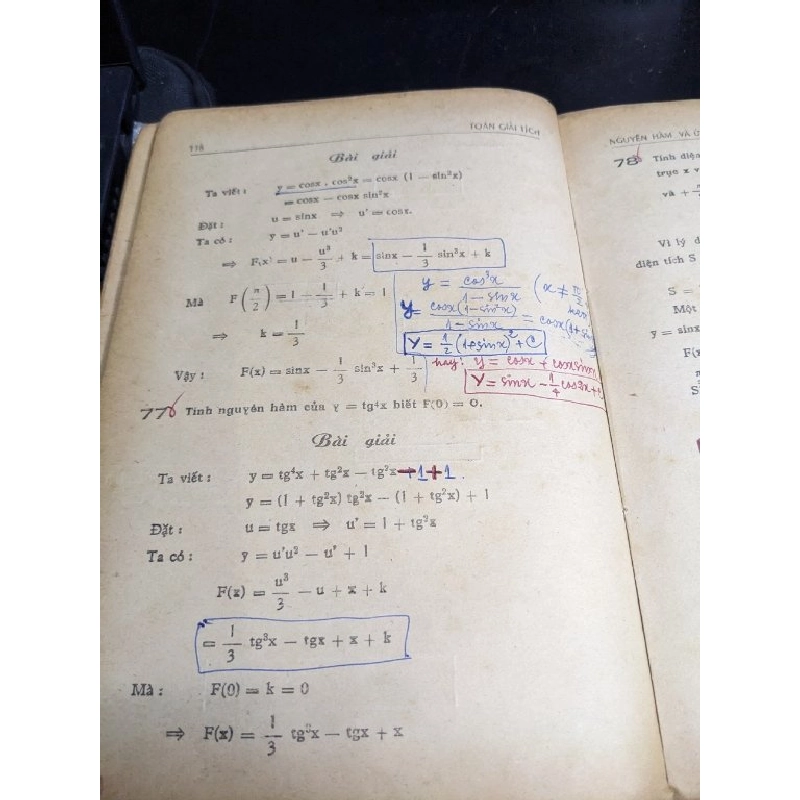 118
TOÁN GIẢI TÍCH
Bài giải
Ta viết : y = cosx . cos²x = cosx (1 — sin²x)
= cosx — cosx sin²x
Đặt : u = sinx ⇒ u' = cosx.
Ta có : y = u' — u'u²
⇒ F(x) = u — u³/3 + k = sinx — 1/3 sin³x + k
Mà F(π/2) = 1 — 1/3 + k = 1
⇒ k = 1/3
y = cos³x / 1 - sinx (x ≠ π/2
y = cosx(1-sin²x) / 1 - sinx = cosx(1+sin
Y = 1/2 (1+sinx)² + C
hay: y = cosx + cosxsinx
Y = sinx - 1/4 cos2x + C
Vậy : F(x) = sinx — 1/3 sin³x + 1/3
77 Tính nguyên hàm của y = tg⁴x biết F(0) = 0.
Bài giải
Ta viết : y = tg⁴x + tg²x — tg²x - 1 + 1.
y = (1 + tg²x) tg²x — (1 + tg²x) + 1
Đặt : u = tgx ⇒ u' = 1 + tg²x
Ta có : y = u'u² — u' + 1
F(x) = u³/3 — u + x + k
= 1/3 tg³x — tgx + x + k
Mà : F(0) = k = 0
⇒ F(x) = 1/3 tg³x — tgx + x
NGUYÊN HÀM VÀ
78 Tính diện
trục x v
và +
Vì lý d
diện tích S
S =
Một
y = sinx
F(x
S